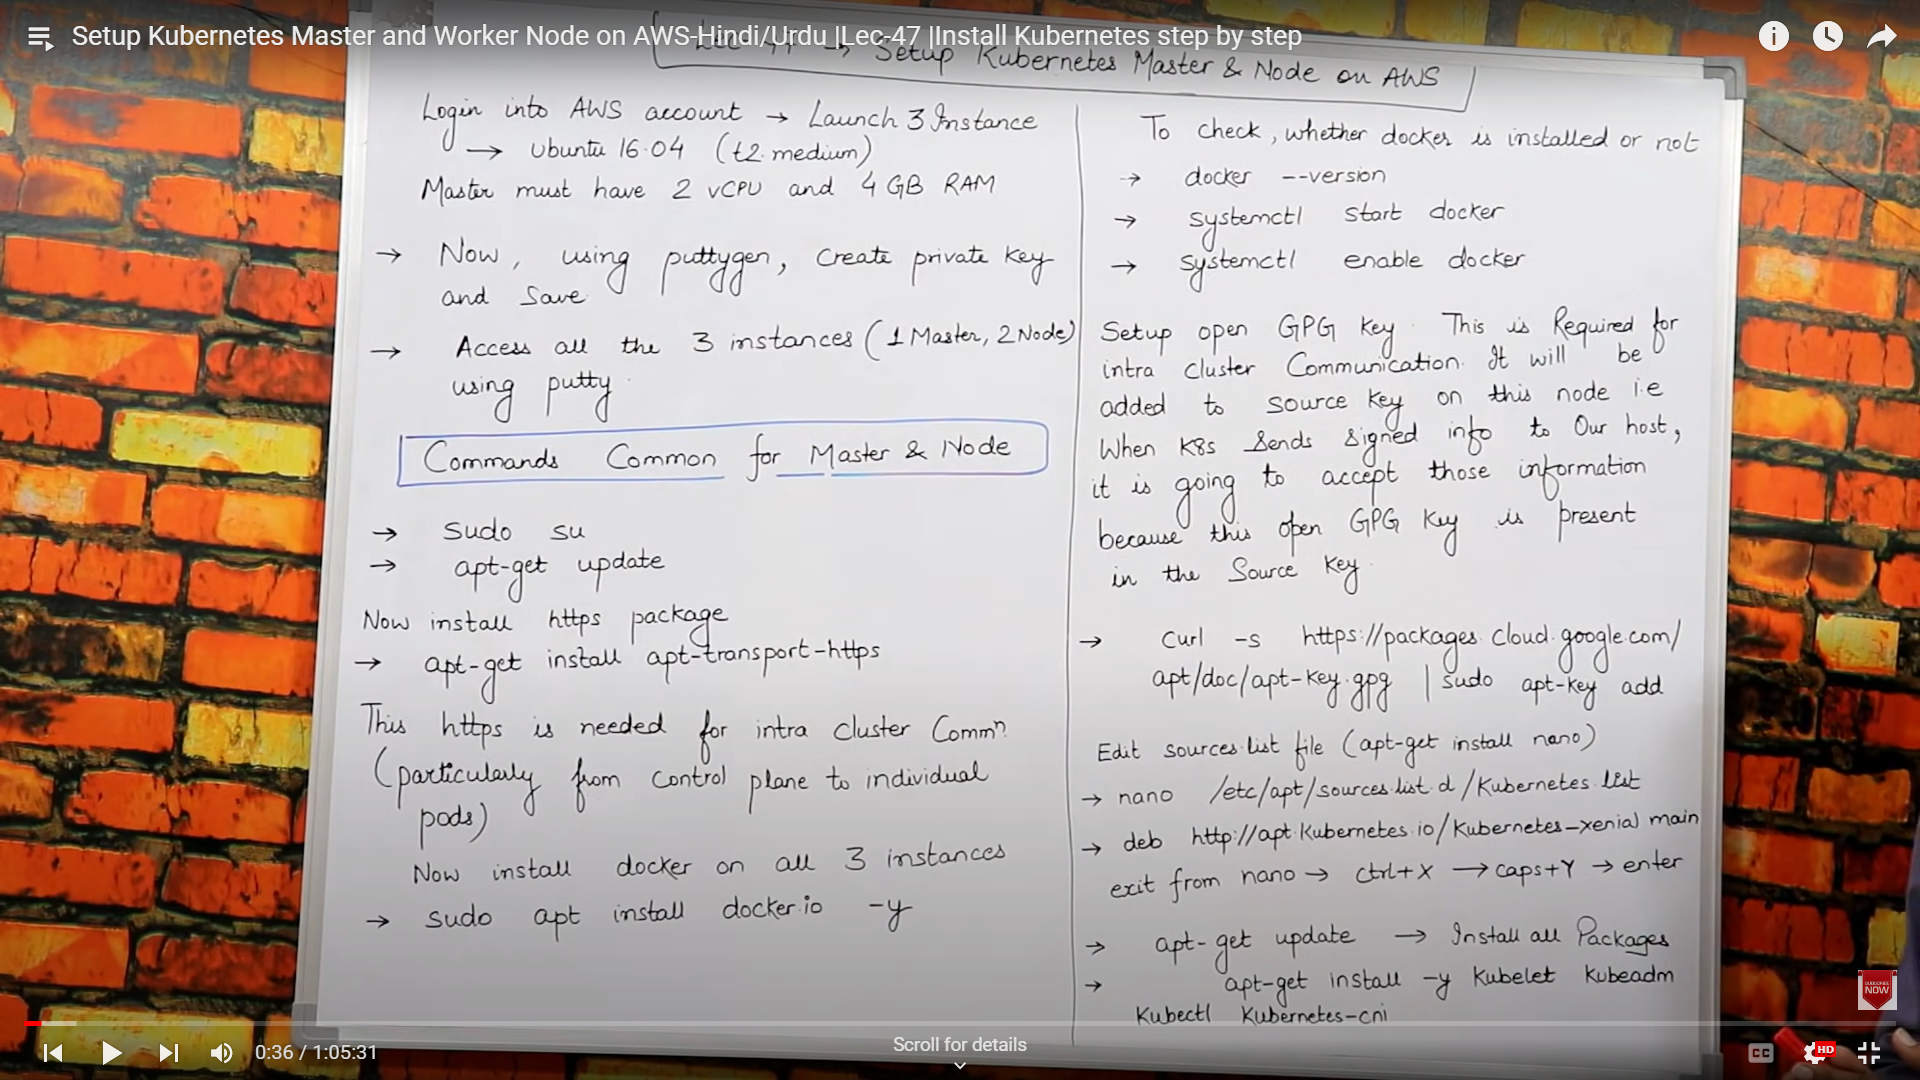 Setup Kubernetes Master and Worker Node on AWS-Hindi/Urdu |Lec-47 |Install Kubernetes step by step
Lec-47 → Setup Kubernetes Master & Node on AWS
Login into AWS account → Launch 3 Instance
→ Ubuntu 16.04 (t2.medium)
Master must have 2 vCPU and 4 GB RAM
→ Now, using puttygen, create private key
and save
→ Access all the 3 instances (1 Master, 2 Node)
using putty.
Commands Common for Master & Node
→ sudo su
→ apt-get update
Now install https package
→ apt-get install apt-transport-https
This https is needed for intra cluster Commⁿ
(particularly from control plane to individual
pods)
Now install docker on all 3 instances
→ sudo apt install docker.io -y
To check, whether docker is installed or not
→ docker --version
→ systemctl start docker
→ systemctl enable docker
Setup open GPG key. This is Required for
intra cluster Communication. It will be
added to source key on this node i.e
When K8s sends signed info to Our host,
it is going to accept those information
because this open GPG key is present
in the Source key.
→ curl -s https://packages.cloud.google.com/
apt/doc/apt-key.gpg | sudo apt-key add
Edit sources.list file (apt-get install nano)
→ nano /etc/apt/sources.list.d/kubernetes.list
→ deb http://apt.kubernetes.io/kubernetes-xenial main
exit from nano → ctrl+X → caps+Y → enter
→ apt-get update → Install all Packages
→ apt-get install -y kubelet kubeadm
kubectl kubernetes-cni
SUBSCRIBE
NOW
0:36 / 1:05:31
Scroll for details
CC
HD